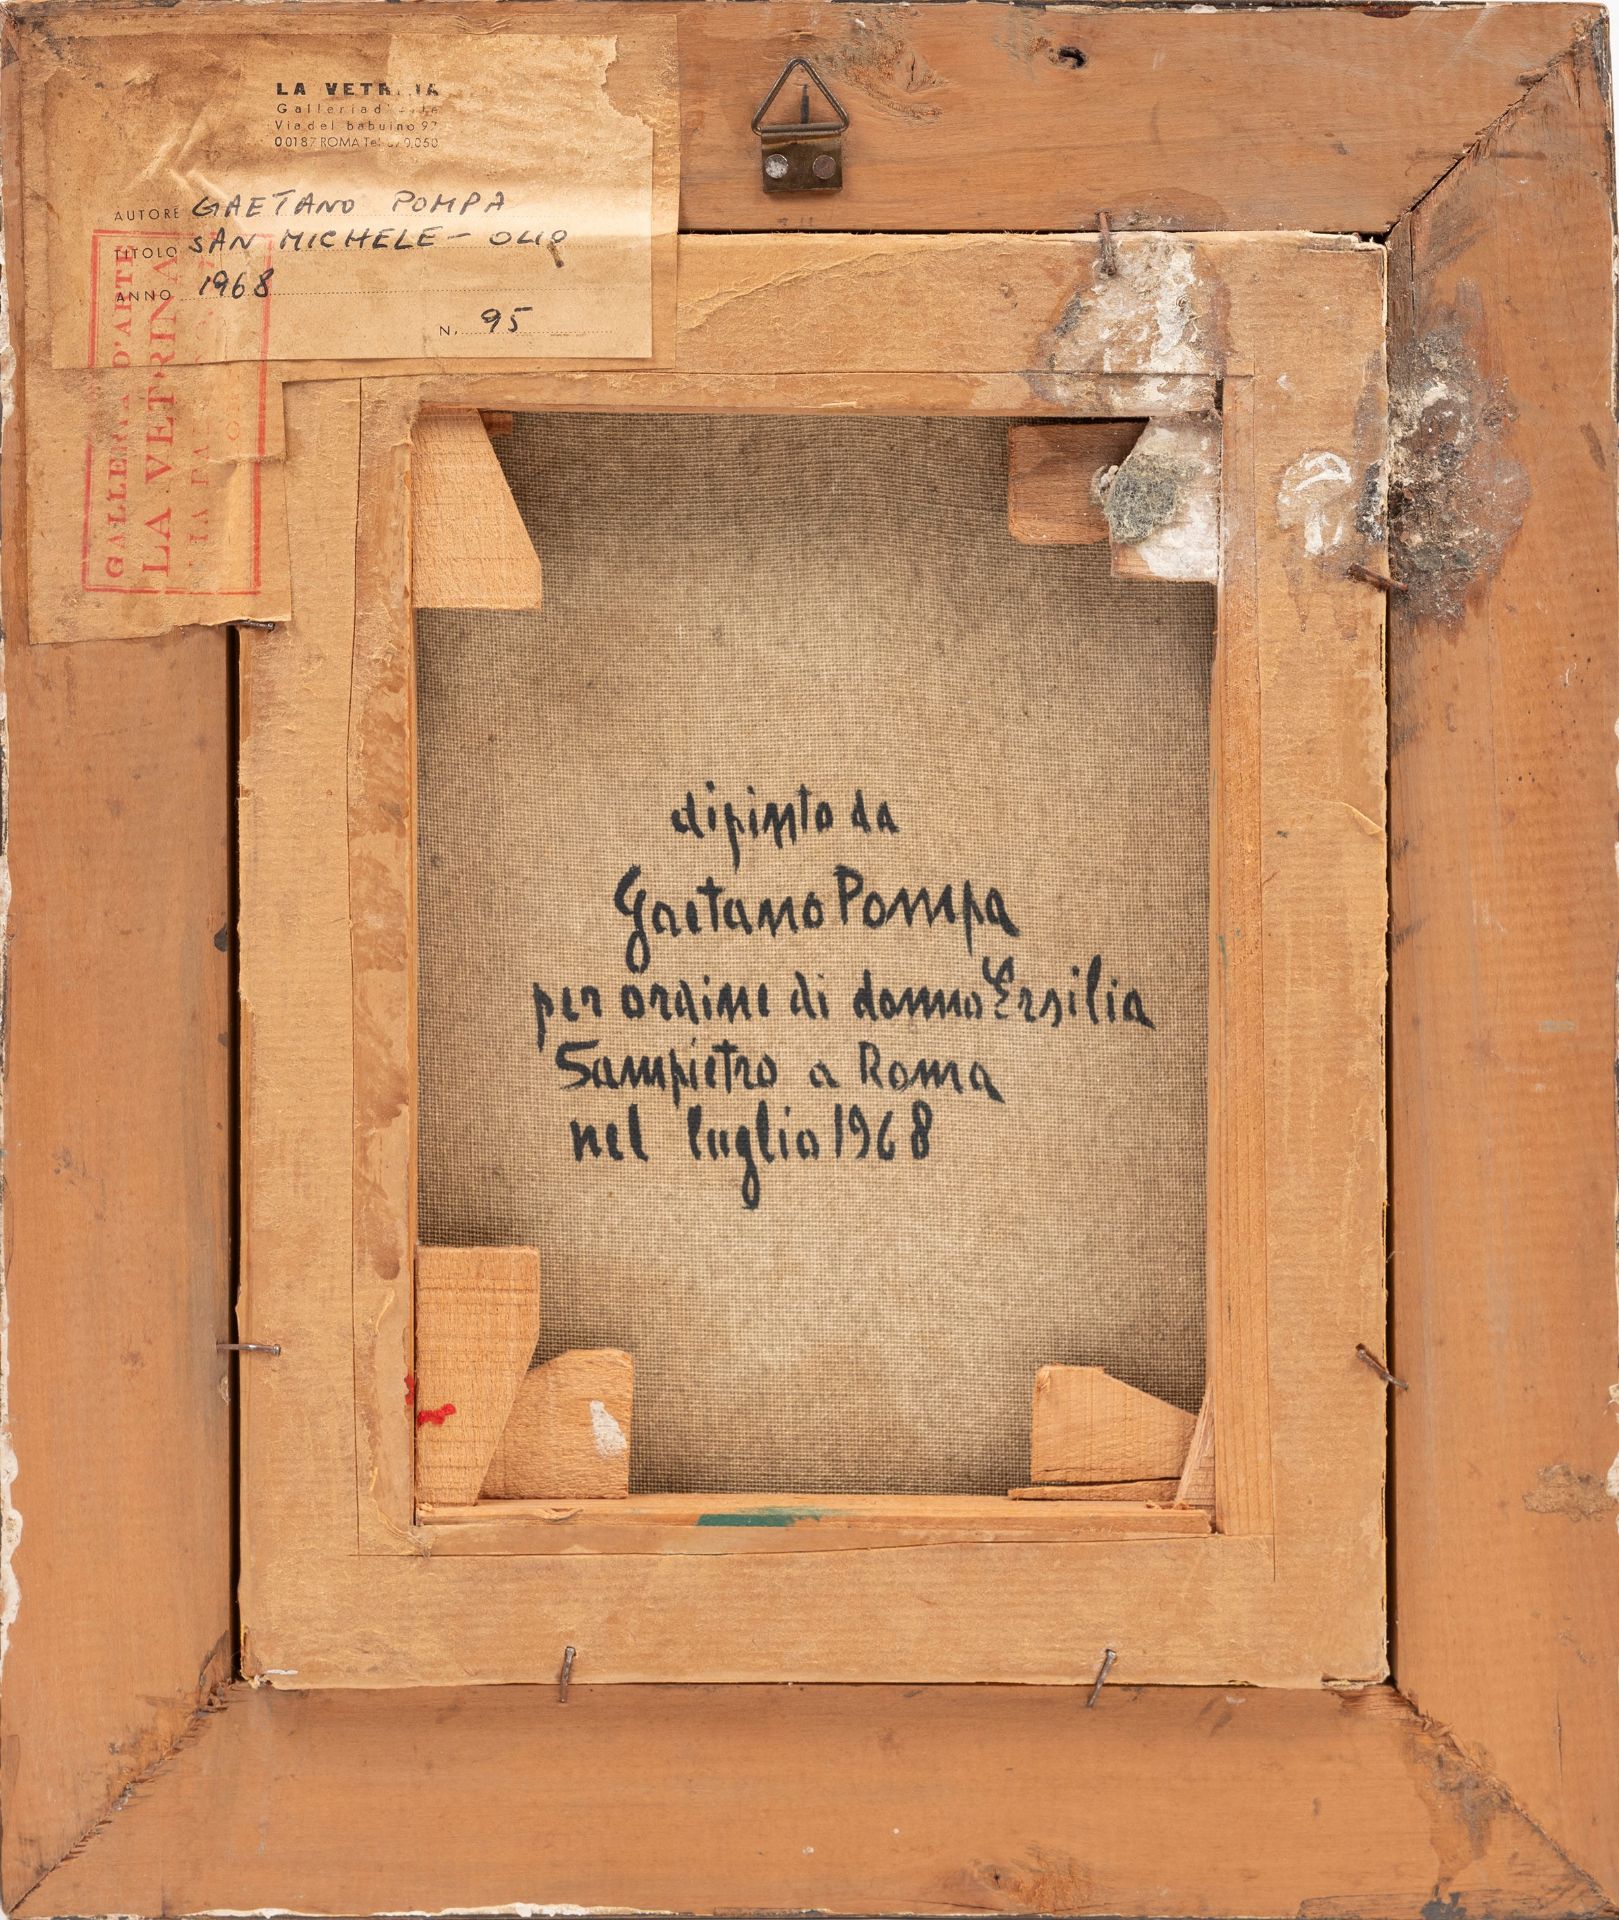 LA VETRINA
Galleria d'arte
Via del babuino 97
00187 ROMA Tel.
AUTORE GAETANO POMPA
TITOLO SAN MICHELE - OLIO
ANNO 1968
N. 95
GALLERIA D'ARTE
LA VETRINA
dipinto da
Gaetano Pompa
per ordine di donna Ersilia
Sampietro a Roma
nel luglio 1968